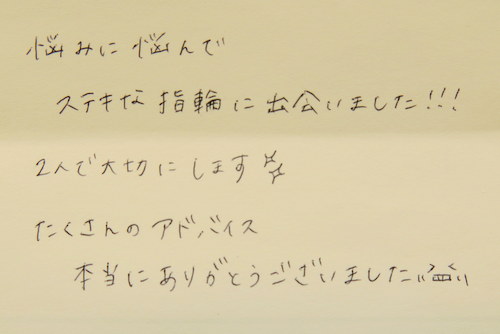 悩みに悩んで
ステキな指輪に出会いました!!!
2人で大切にします
たくさんのアドバイス
本当にありがとうございました